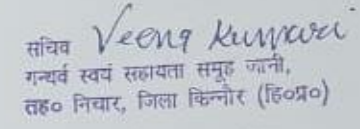 सचिव Veena Kumari
गन्धर्व स्वयं सहायता समूह जानी,
तह० निचार, जिला किन्नौर (हि०प्र०)